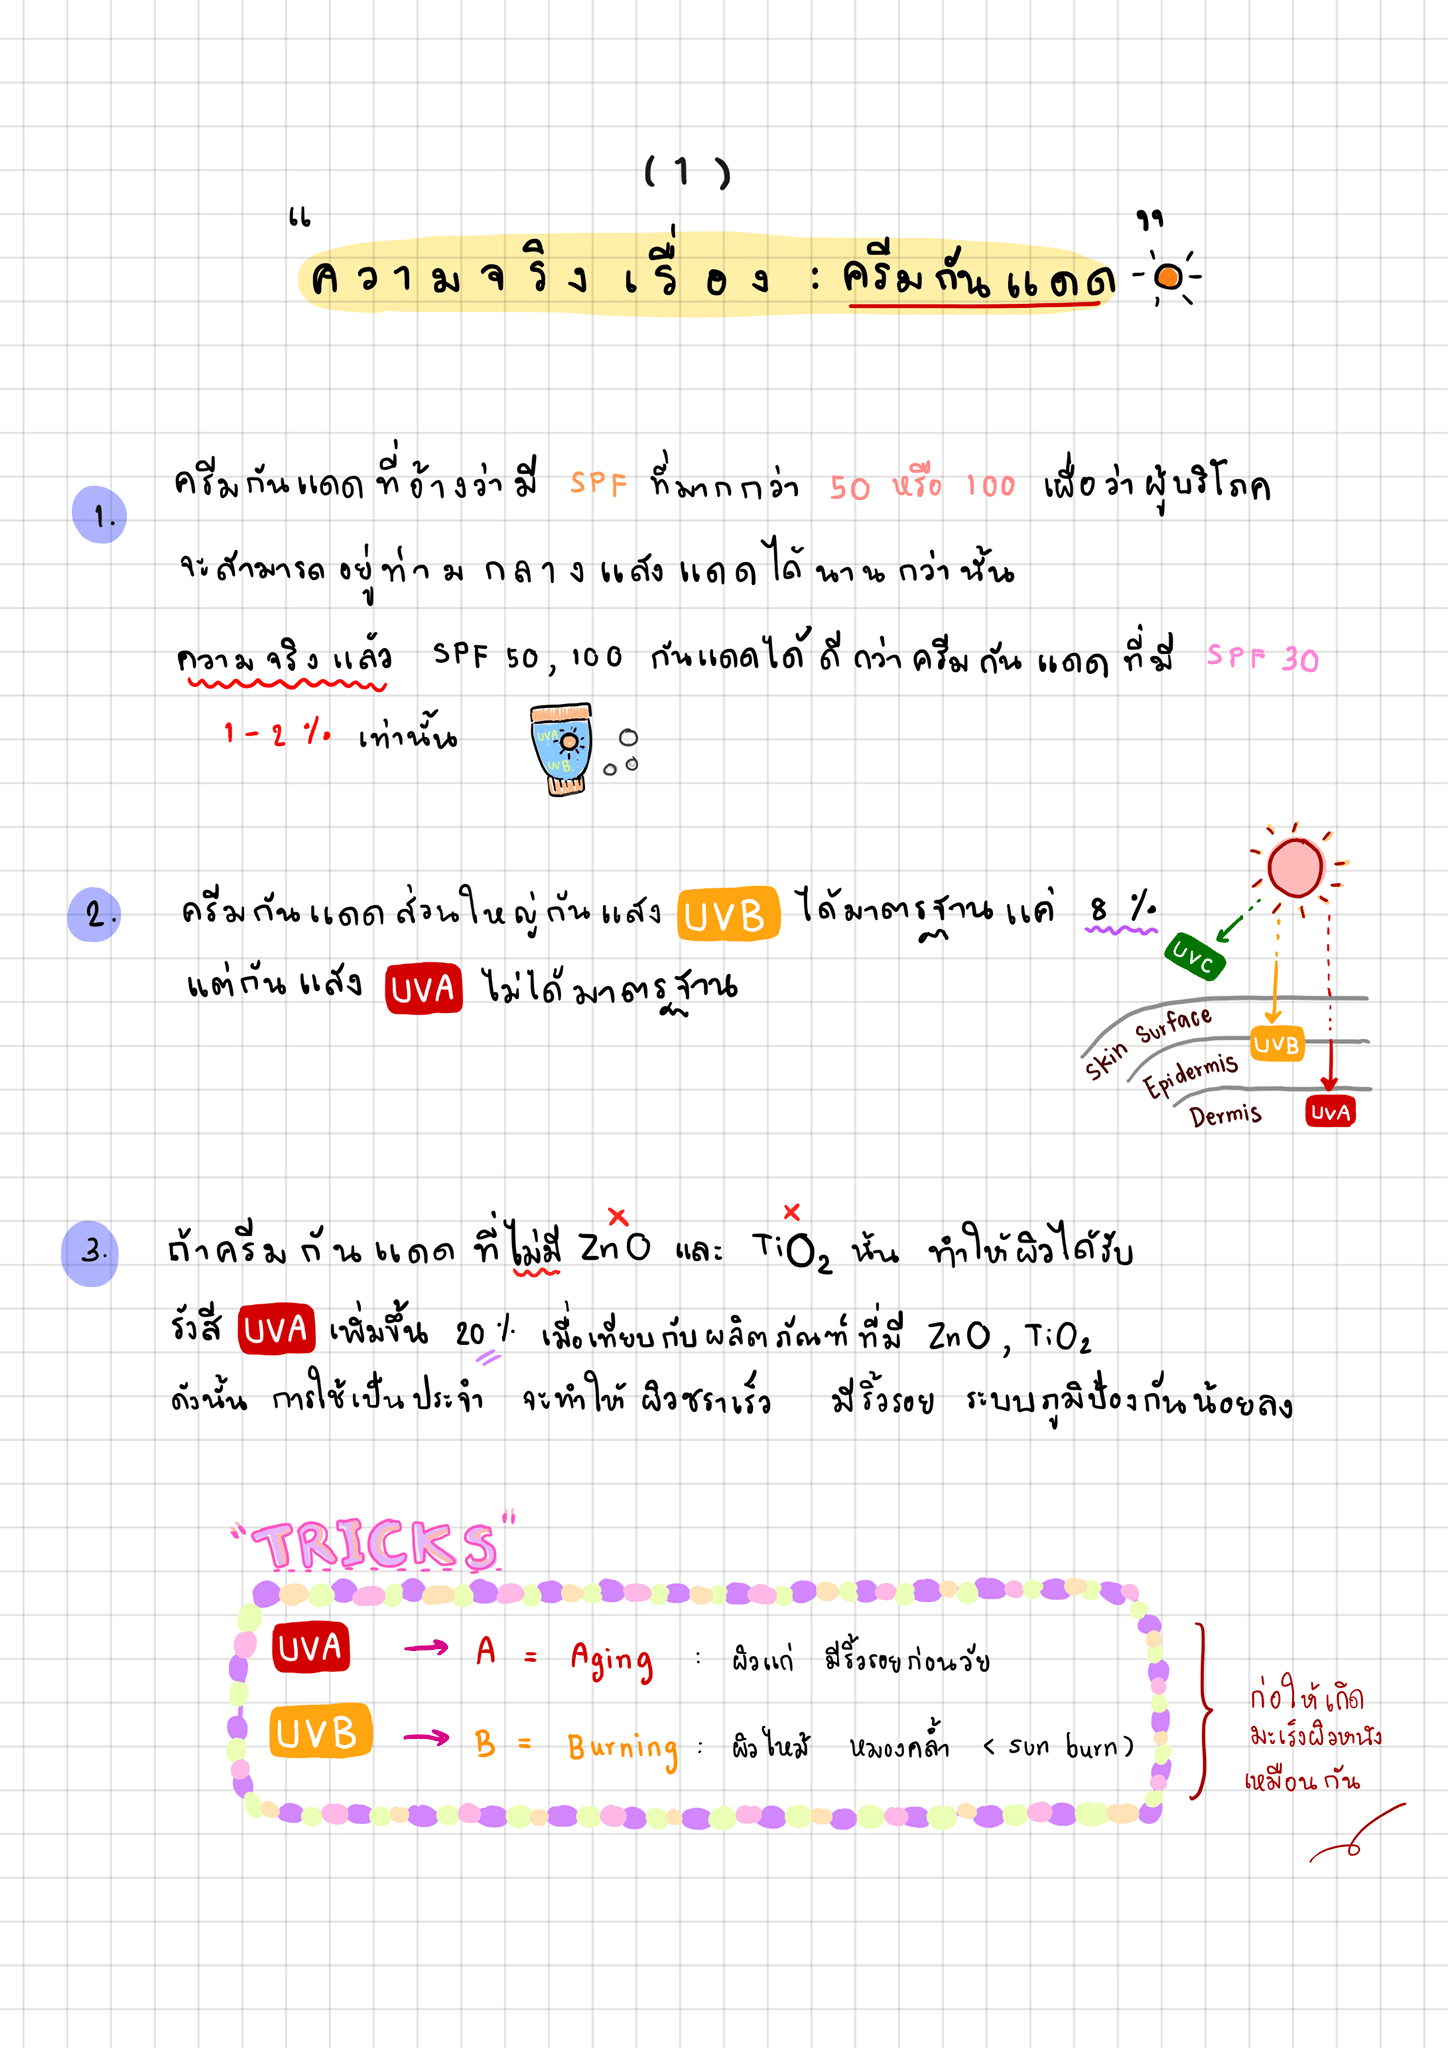 (1)
" ความจริงเรื่อง : ครีมกันแดด "
1. ครีมกันแดดที่อ้างว่ามี SPF ที่มากกว่า 50 หรือ 100 เผื่อว่าผู้บริโภค
จะสามารถอยู่ท่ามกลางแสงแดดได้นานกว่านั้น
ความจริงแล้ว SPF 50, 100 กันแดดได้ดีกว่าครีมกันแดดที่มี SPF 30
1-2 % เท่านั้น
UVA
UVB
2. ครีมกันแดดส่วนใหญ่กันแสง UVB ได้มาตรฐานแค่ 8 %
แต่กันแสง UVA ไม่ได้มาตรฐาน
UVC
Skin Surface
UVB
Epidermis
Dermis
UVA
3. ถ้าครีมกันแดดที่ไม่มี ZnO และ TiO₂ นั้น ทำให้ผิวได้รับ
รังสี UVA เพิ่มขึ้น 20 % เมื่อเทียบกับผลิตภัณฑ์ที่มี ZnO, TiO₂
ดังนั้น การใช้เป็นประจำ จะทำให้ผิวชราเร็ว มีริ้วรอย ระบบภูมิป้องกันน้อยลง
"TRICKS"
UVA → A = Aging : ผิวแก่ มีริ้วรอยก่อนวัย
UVB → B = Burning : ผิวไหม้ หมองคล้ำ (sun burn)
ก่อให้เกิด
มะเร็งผิวหนัง
เหมือนกัน